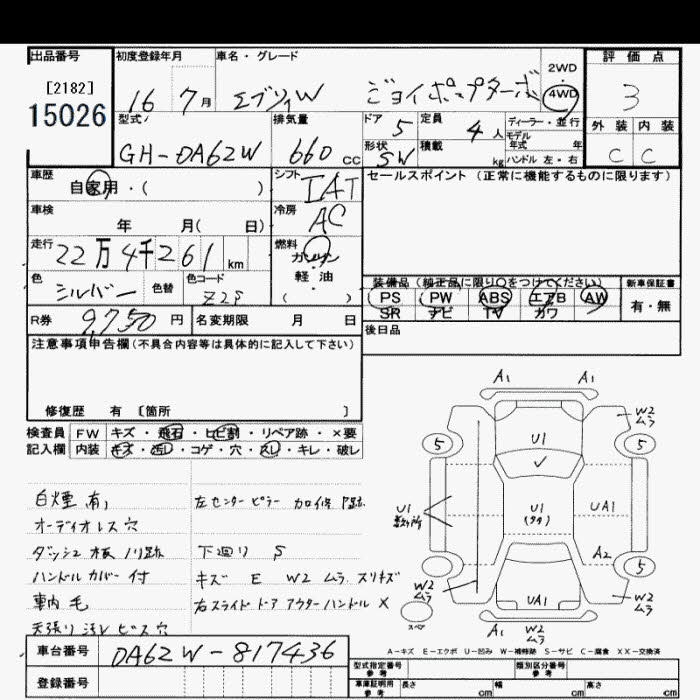 出品番号
[2182]
15026
初度登録年月
16年 7月
車名・グレード
エブリィW ジョイポップターボ
2WD
4WD
評価点
3
型式
GH-DA62W
排気量
660 cc
ドア 5
定員 4人
ディーラー・並行
モデル年式 年
形状 SW
積載 kg
ハンドル 左・右
外装 内装
C C
車歴
自家用・( )
シフト IAT
セールスポイント (正常に機能するものに限ります)
車検
年 月( 日)
冷房 AC
走行
22万4千261 km
燃料
ガソリン
軽・油
( )
色 シルバー
色替
色コード Z2S
装備品 (純正品に限り○をつけてください)
新車保証書
PS PW ABS エアB AW
SR ナビ TV カワ
有・無
R券 9,750円
名変期限 月 日
後日品
注意事項申告欄 (不具合内容等は具体的に記入して下さい)
修復歴 有 [箇所 ]
検査員 FW キズ・飛石・ヒビ割・リペア跡・×要
記入欄 内装 キズ・汚レ・コゲ・穴・スレ・キレ・破レ
白煙有り
左センターピラー 加修 跡
オーディオレス 穴
ダッシュ板 ノリ跡
下廻り S
ハンドルカバー付
キズ E W2 ムラ スリキズ
車内 毛
右スライドドア アウターハンドル X
天張り 汚レ ビス穴
A1 A1
W2 ムラ
5 5
U1
U1
U1 (タタ)
UA1
A2
5
W2 ムラ
UA1
W2 ムラ
スペア
A1 W2 ムラ
A-キズ E-エクボ U-凹み W-補修跡 S-サビ C-腐食 XX-交換済
車台番号 DA62W-817436
登録番号
型式指定番号 参考
類別区分番号 参考
車庫証明用 参考
長さ cm 幅 cm 高さ cm